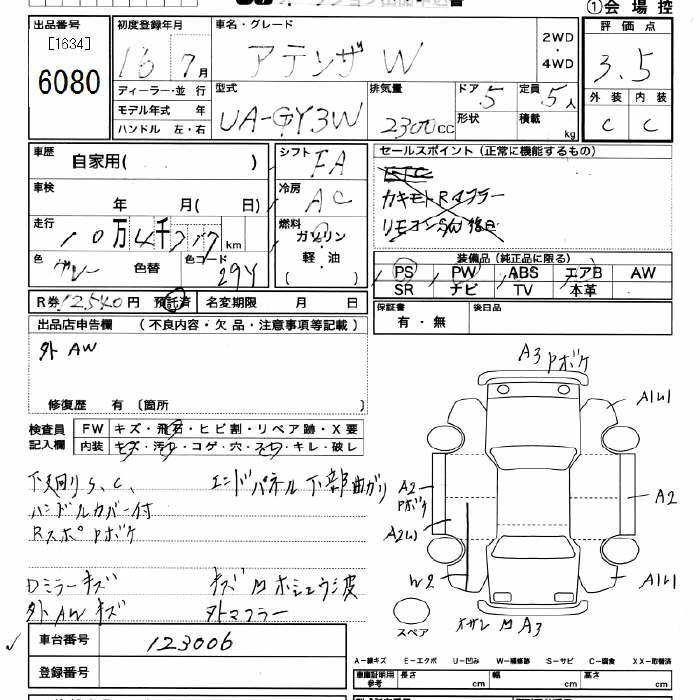 ①会場控
出品番号 [1634] 6080
初度登録年月 16 7月
ディーラー・並行
モデル年式 年
ハンドル 左・右
車名・グレード アテンザ W
2WD ・ 4WD
型式 UA-GY3W
排気量 2300cc
ドア 5
形状
定員 5人
積載 kg
評価点 3.5
外装 C
内装 C
車歴 自家用( )
車検 年 月( 日)
走行 10万4千717km
色 グレー 色替
色コード 29Y
シフト FA
冷房 AC
燃料 ガソリン
軽・油
( )
セールスポイント(正常に機能するもの)
ETC
カキモトRマフラー
リモコンS/W 後日
装備品(純正品に限る)
PS PW ABS エアB AW
SR ナビ TV 本革
R券 12,540円 預託済
名変期限 月 日
保証書 有・無
後日品
出品店申告欄 (不良内容・欠品・注意事項等記載)
外 AW
修復歴 有(箇所 )
検査員記入欄
FW キズ・飛石・ヒビ割・リペア跡・X要
内装 キズ・汚れ・コゲ・穴・スレ・キレ・破レ
下廻り S、C、
ハンドルカバー付
Rスポ Pボケ
エンドパネル下部曲ガリ
Dミラーキズ
外AWキズ
キズ凹ホシュウシ波
外マフラー
A3 Pボケ
A1U1
A2
Pボケ
A2U1
W2
A2
A1U1
スペア
オサレ凹A3
車台番号 123006
登録番号
A-線キズ E-エクボ U-凹み W-補修跡 S-サビ C-腐食 XX-取替済
車庫証明用参考 長さ cm 幅 cm 高さ cm